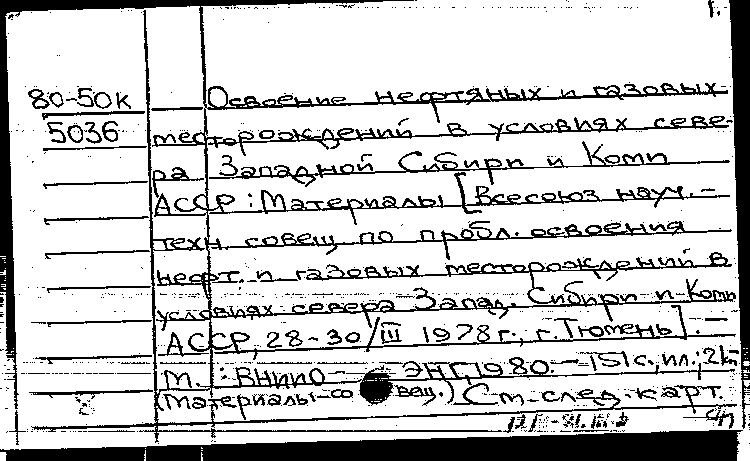 80-50к Освоение нефтяных и газовых
5036 месторождений в условиях севе-
ра Западной Сибири и Коми
АССР: Материалы [Всесоюз науч.-
техн. совещ по пробл. освоения
нефт. и газовых месторождений в
условиях севера Запад. Сибири и Коми
АССР, 28-30/III 1978г., г. Тюмень]. -
М. : ВНИИО- ЭНГ, 1980. - 151с., ил.;
(Материалы-со вещ.) См. след. карт.